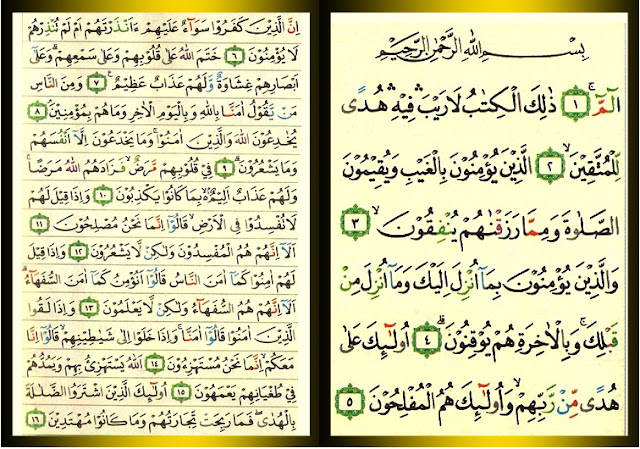 بِسْمِ اللهِ الرَّحْمٰنِ الرَّحِيْمِ
الٓمّٓ ۚ ١ ذٰلِكَ الْكِتٰبُ لَا رَيْبَ ۛ فِيْهِ ۛ هُدًى
لِّلْمُتَّقِيْنَ ۙ ٢ الَّذِيْنَ يُؤْمِنُوْنَ بِالْغَيْبِ وَيُقِيْمُوْنَ
الصَّلٰوةَ وَمِمَّا رَزَقْنٰهُمْ يُنْفِقُوْنَ ۙ ٣
وَالَّذِيْنَ يُؤْمِنُوْنَ بِمَآ اُنْزِلَ اِلَيْكَ وَمَآ اُنْزِلَ مِنْ
قَبْلِكَ ۚ وَبِالْاٰخِرَةِ هُمْ يُوْقِنُوْنَ ۗ ٤ اُولٰٓئِكَ عَلٰى
هُدًى مِّنْ رَّبِّهِمْ ۙ وَاُولٰٓئِكَ هُمُ الْمُفْلِحُوْنَ ٥
اِنَّ الَّذِيْنَ كَفَرُوْا سَوَآءٌ عَلَيْهِمْ ءَاَنْذَرْتَهُمْ اَمْ لَمْ تُنْذِرْهُمْ
لَا يُؤْمِنُوْنَ ٦ خَتَمَ اللهُ عَلٰى قُلُوْبِهِمْ وَعَلٰى سَمْعِهِمْ ۗ وَعَلٰٓى
اَبْصَارِهِمْ غِشَاوَةٌ وَّلَهُمْ عَذَابٌ عَظِيْمٌ ۚ ٧ وَمِنَ النَّاسِ
مَنْ يَّقُوْلُ اٰمَنَّا بِاللهِ وَبِالْيَوْمِ الْاٰخِرِ وَمَا هُمْ بِمُؤْمِنِيْنَ ۘ ٨
يُخٰدِعُوْنَ اللهَ وَالَّذِيْنَ اٰمَنُوْا ۚ وَمَا يَخْدَعُوْنَ اِلَّآ اَنْفُسَهُمْ
وَمَا يَشْعُرُوْنَ ۗ ٩ فِيْ قُلُوْبِهِمْ مَّرَضٌ ۙ فَزَادَهُمُ اللهُ مَرَضًا ۚ
وَلَهُمْ عَذَابٌ اَلِيْمٌ ۙ بِمَا كَانُوْا يَكْذِبُوْنَ ١٠ وَاِذَا قِيْلَ لَهُمْ
لَا تُفْسِدُوْا فِى الْاَرْضِ ۙ قَالُوْٓا اِنَّمَا نَحْنُ مُصْلِحُوْنَ ١١
اَلَآ اِنَّهُمْ هُمُ الْمُفْسِدُوْنَ وَلٰكِنْ لَّا يَشْعُرُوْنَ ١٢ وَاِذَا قِيْلَ
لَهُمْ اٰمِنُوْا كَمَآ اٰمَنَ النَّاسُ قَالُوْٓا اَنُؤْمِنُ كَمَآ اٰمَنَ السُّفَهَآءُ ۗ
اَلَآ اِنَّهُمْ هُمُ السُّفَهَآءُ وَلٰكِنْ لَّا يَعْلَمُوْنَ ١٣ وَاِذَا لَقُوا
الَّذِيْنَ اٰمَنُوْا قَالُوْٓا اٰمَنَّا ۚ وَاِذَا خَلَوْا اِلٰى شَيٰطِيْنِهِمْ ۙ قَالُوْٓا اِنَّا
مَعَكُمْ ۙ اِنَّمَا نَحْنُ مُسْتَهْزِءُوْنَ ١٤ اَللهُ يَسْتَهْزِئُ بِهِمْ وَيَمُدُّهُمْ
فِيْ طُغْيَانِهِمْ يَعْمَهُوْنَ ١٥ اُولٰٓئِكَ الَّذِيْنَ اشْتَرَوُا الضَّلٰلَةَ
بِالْهُدٰى ۖ فَمَا رَبِحَتْ تِّجَارَتُهُمْ وَمَا كَانُوْا مُهْتَدِيْنَ ١٦